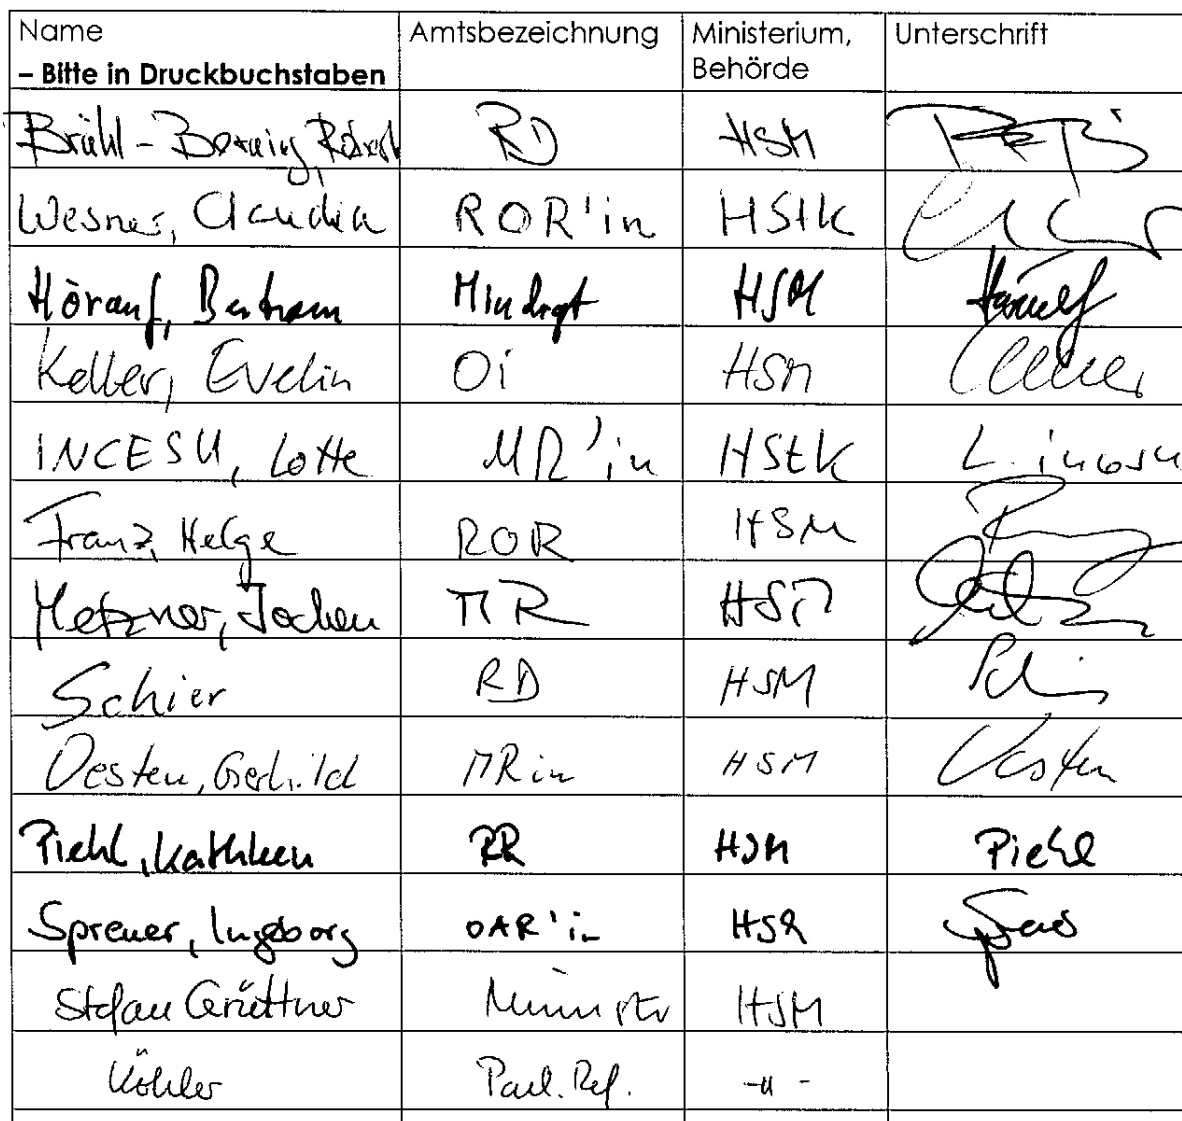 Name Amtsbezeichnung Ministerium, Unterschrift
– Bitte in Druckbuchstaben Behörde
Brühl-Berning, Robert RD HSM
Wesner, Claudia ROR'in HStK
Hörauf, Bertram Mindrgt HSM Hörauf
Keller, Evelin OI HSM Keller
INCESU, Lotte MR'in HStK L. Incesu
Franz, Helge ROR HSM
Metzner, Jochen MR HSM
Schier RD HSM
Oesten, Gerhild MRin HSM Oesten
Piehl, Kathleen RR HSM Piehl
Spreuer, Ingeborg OAR'in HSM
Stefan Grüttner Minister HSM
Köhler Parl. Ref. -"-